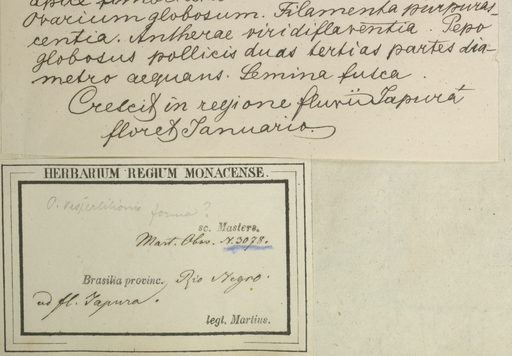 Ovarium globosum. Filamenta purpuras-
centia. Antherae viridiflaventia. Pepo
globosus pollicis duas tertias partes dia-
metro aequans. Semina fusca.
Crescit in regione fluvii Iapurá
floret Ianuario.
HERBARIUM REGIUM MONACENSE.
O. vespertilionis forma?
sc. Masters.
Mart. Obs. N. 3078.
Brasilia provinc. Rio Negro.
ad fl. Iapura.
legt. Martius.